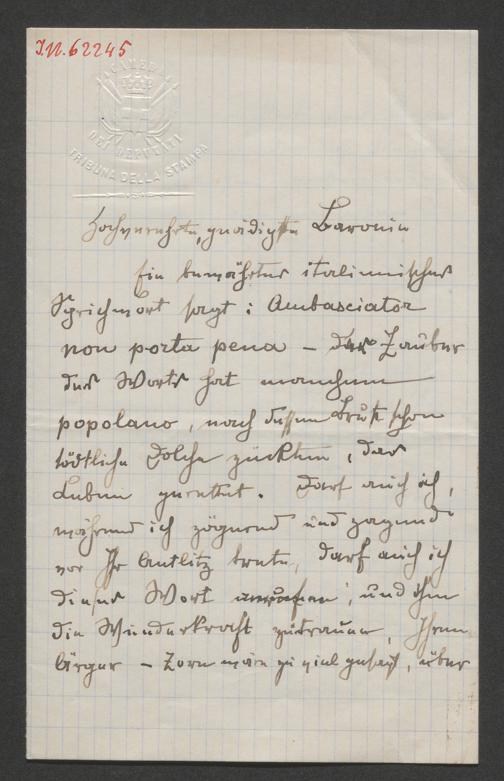 I.N. 62245
CAMERA
DEI DEPUTATI
TRIBUNA DELLA STAMPA
Hochverehrte, gnädigste Baronin
Ein bewährtes italienisches
Sprichwort sagt: Ambasciator
non porta pena – der Zauber
des Worts hat manchem
popolano, nach dessen Brust schon
tödtliche Dolche zückten, das
Leben gerettet. Darf auch ich,
während ich zögernd und zagend
vor Ihr Antlitz trete, darf auch ich
dieses Wort anrufen, und ihm
die Wunderkraft zutrauen, Ihren
Ärger – Zorn wäre zu viel gesagt, über